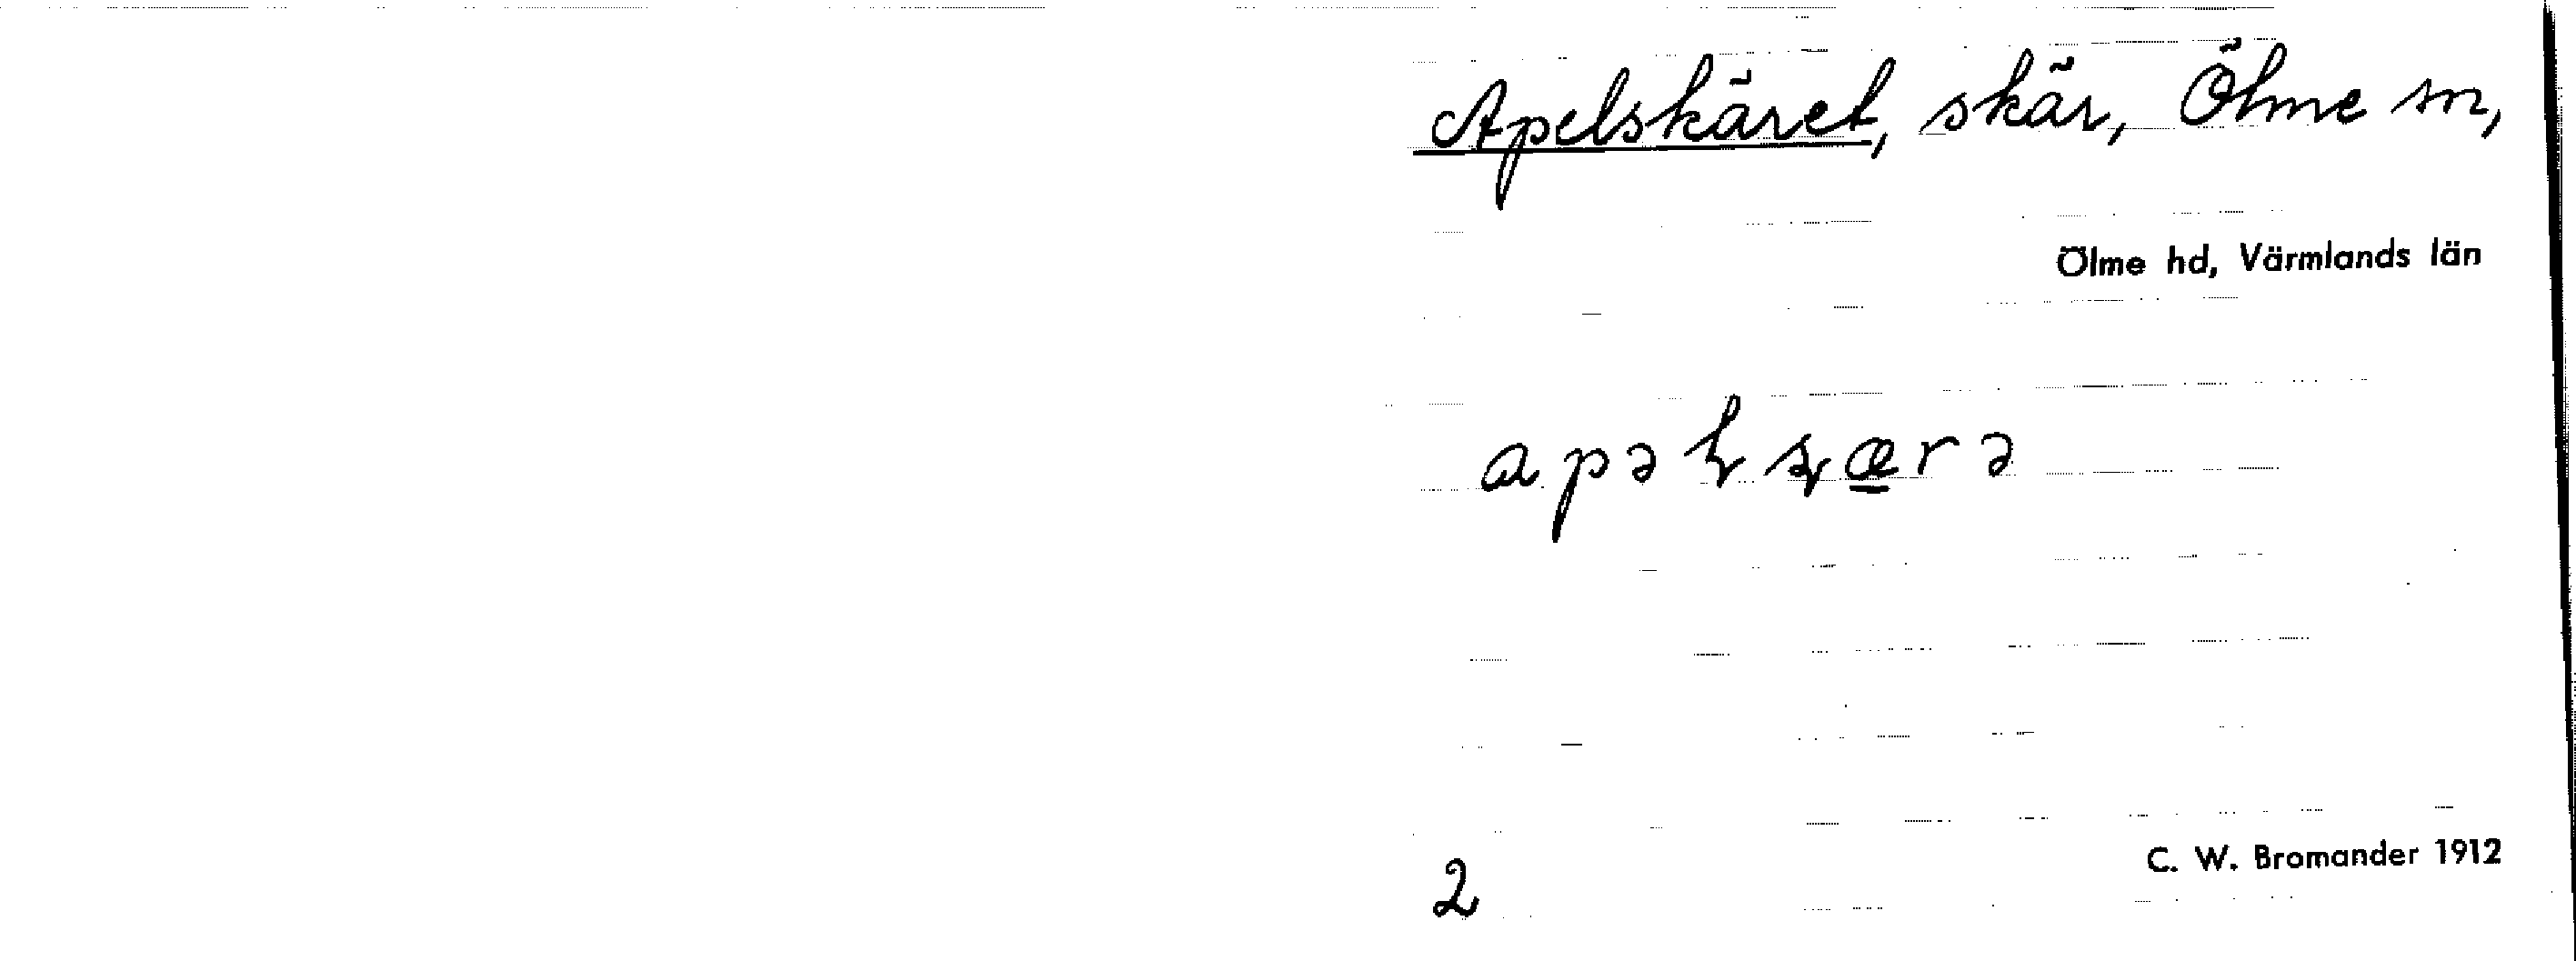 Apelskäret, skär, Ölme sn,
Ölme hd, Värmlands län
2
C. W. Bromander 1912